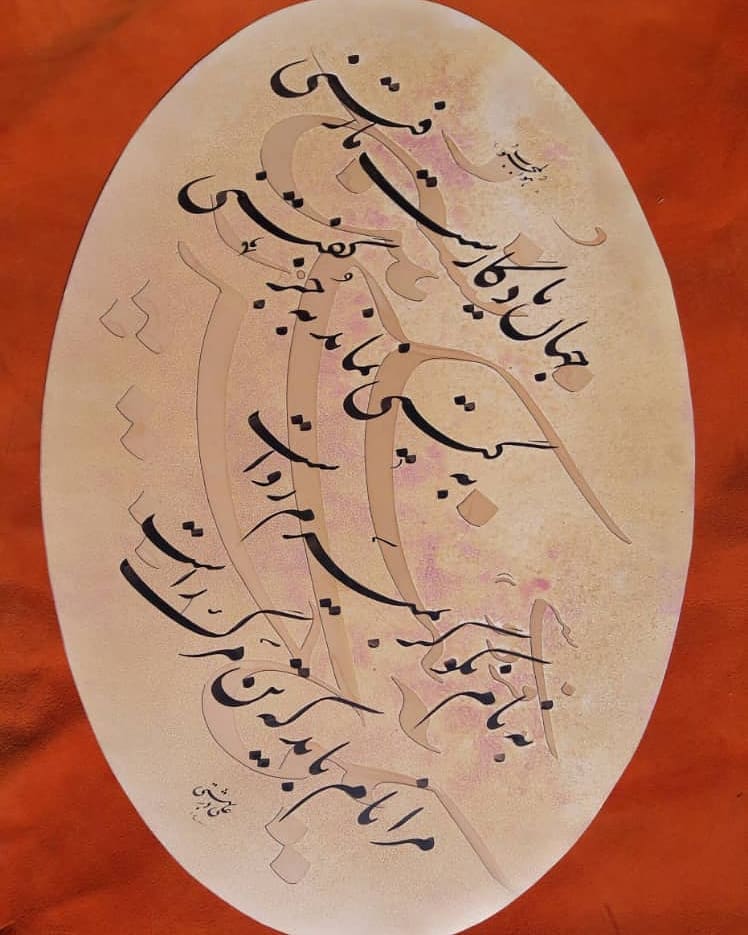 جهان یادگارست ما رفتنی
به گیتی نماند به جز گفتنی
به نام نکو گر بمیرم رواست
مرا نام باید که تن مرگ راست